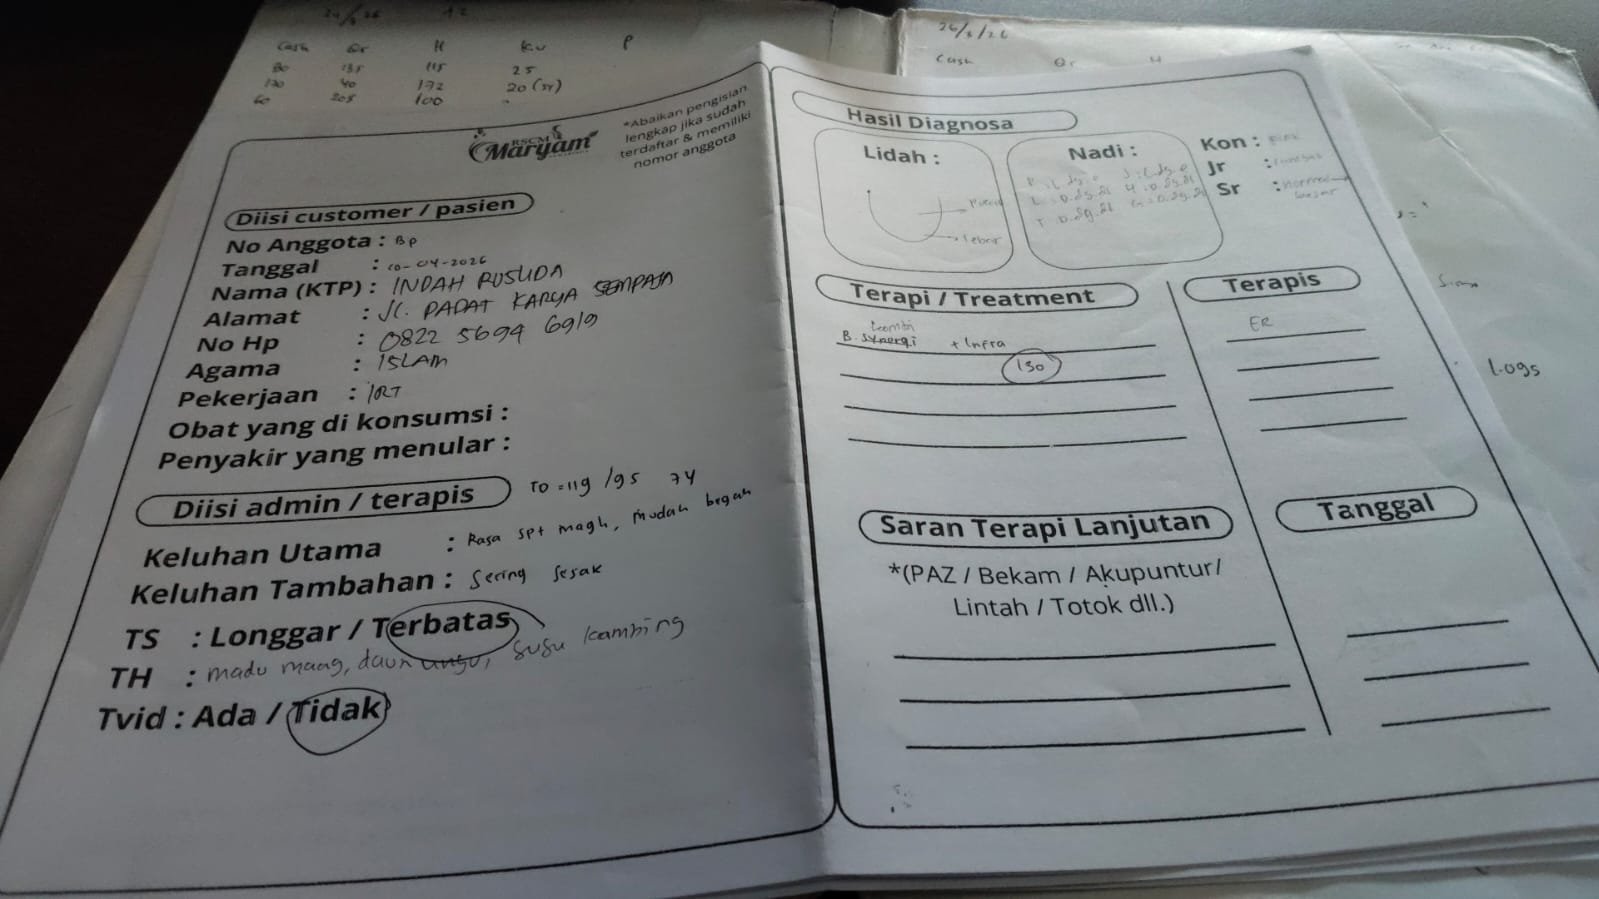 24/3/26 12
Cash Qr H KU P
80 135 115 25
170 40 172 20 (sy)
60 205 100
26/3/26
Cash Qr H
RSCM
Maryam
*Abaikan pengisian
lengkap jika sudah
terdaftar & memiliki
nomor anggota
Diisi customer / pasien
No Anggota : Bp
Tanggal : 10-04-2026
Nama (KTP) : INDAH RUSLIDA
Alamat : Jl. PADAT KARYA SEMPAJA
No Hp : 0822 5694 6919
Agama : ISLAM
Pekerjaan : IRT
Obat yang di konsumsi :
Penyakir yang menular :
Diisi admin / terapis TD = 119 / 95 74
Keluhan Utama : Rasa spt magh, mudah begah
Keluhan Tambahan : Sering sesak
TS : Longgar / Terbatas
TH : madu maag, daun ungu, susu kambing
Tvid : Ada / Tidak
Hasil Diagnosa
Lidah :
lebar
Nadi :
Kon :
Jr :
Sr : normal
besar
Terapi / Treatment
kombi
B. Synergi + Infra
130
Terapis
ER
Saran Terapi Lanjutan
*(PAZ / Bekam / Akupuntur/
Lintah / Totok dll.)
Tanggal
Logs